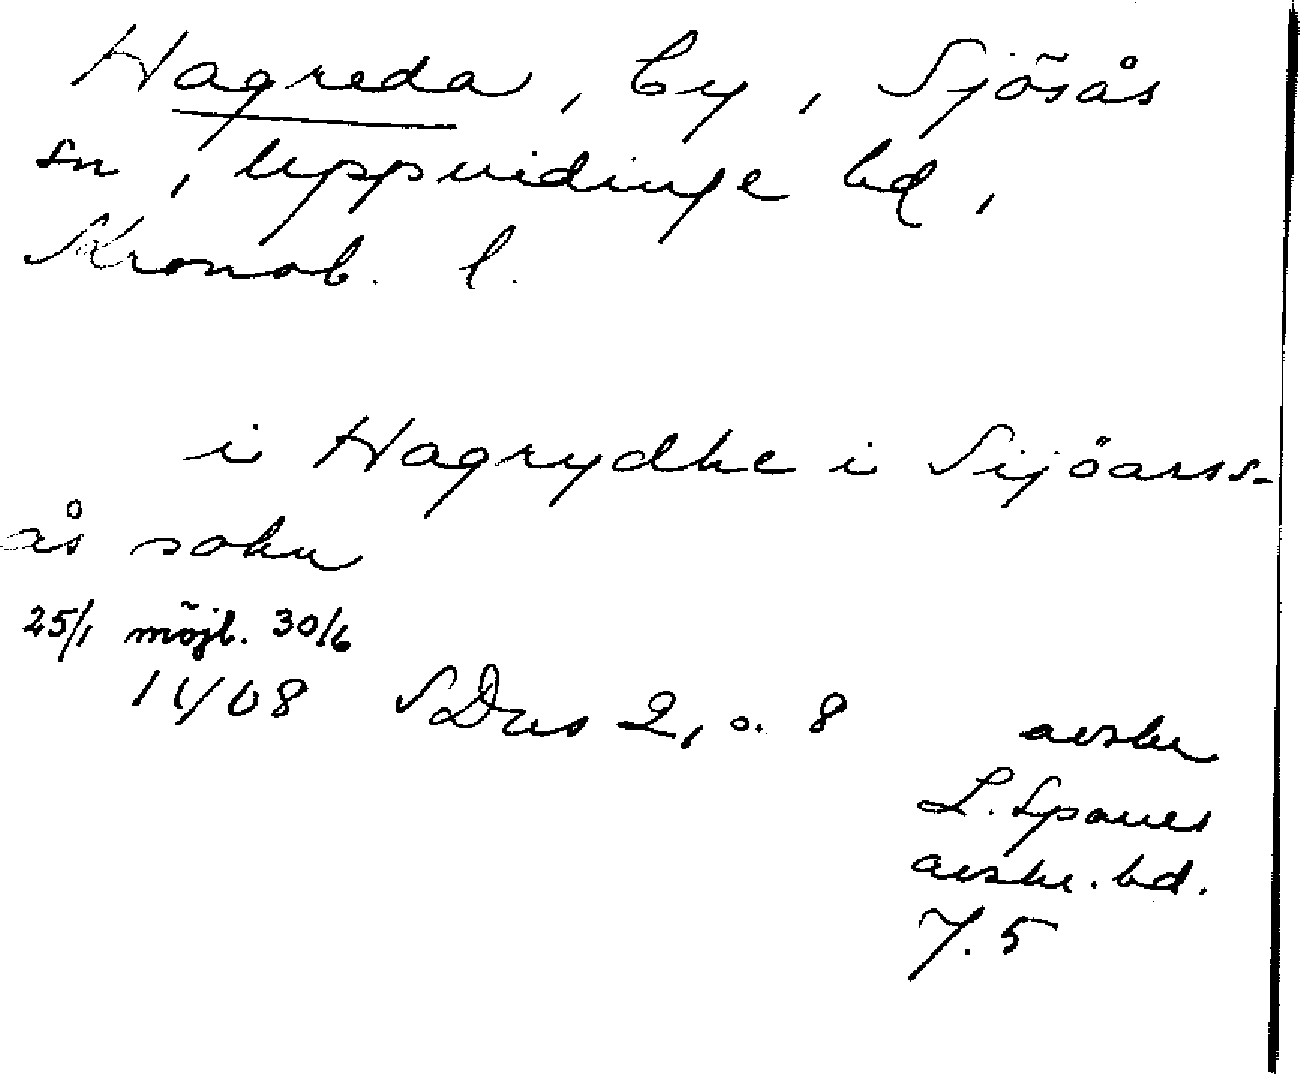 Hagreda, by, Sjösås
sn, Uppvidinge hd,
Kronob. l.
i Hagrydhe i Sijöarss-
ås sokn
25/1 möjl. 30/6
1408 SDns 2, s. 8
avskr
L. Sparres
avskr. bd.
7.5